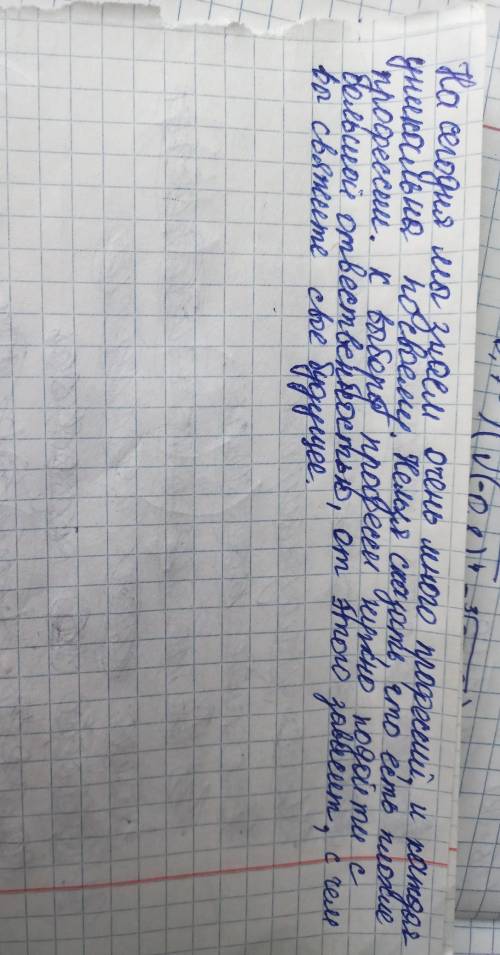 На сегодня мы знаем очень много професий, и каждая
уникальна посвоему. Нельзя сказать что есть плохие
професcии. К выбору професси нужно подойти с
большой отвественностью, от этого зависит, с чем
вы свяжите свое будущее.